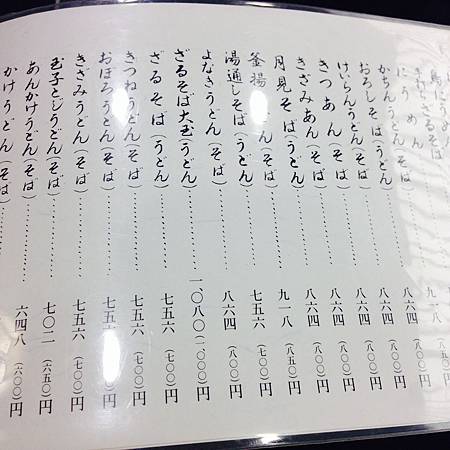 にうめん
かちんうどん(そば)……九一八
おろしそば(うどん)……八六四
けいらんうどん(そば)……八六四(八〇〇)円
きつあん(そば)……八六四(八〇〇)円
きざみあん(そば)……八六四(八〇〇)円
月見そば(うどん)……八六四(八〇〇)円
釜揚(うどん)……九一八(八五〇)円
湯通しそば(うどん)……七五六(七〇〇)円
よなきうどん(そば)……八六四(八〇〇)円
ざるそば大玉(うどん)……一、〇八〇(一、〇〇〇)円
ざるそば(うどん)……七五六(七〇〇)円
きつねうどん(そば)……七五六(七〇〇)円
おぼろうどん(そば)……七五六(七〇〇)円
きざみうどん(そば)……七五六(七〇〇)円
玉子とじうどん(そば)……七〇二(六五〇)円
あんかけうどん(そば)……六四八(六〇〇)円
かけうどん(そば)